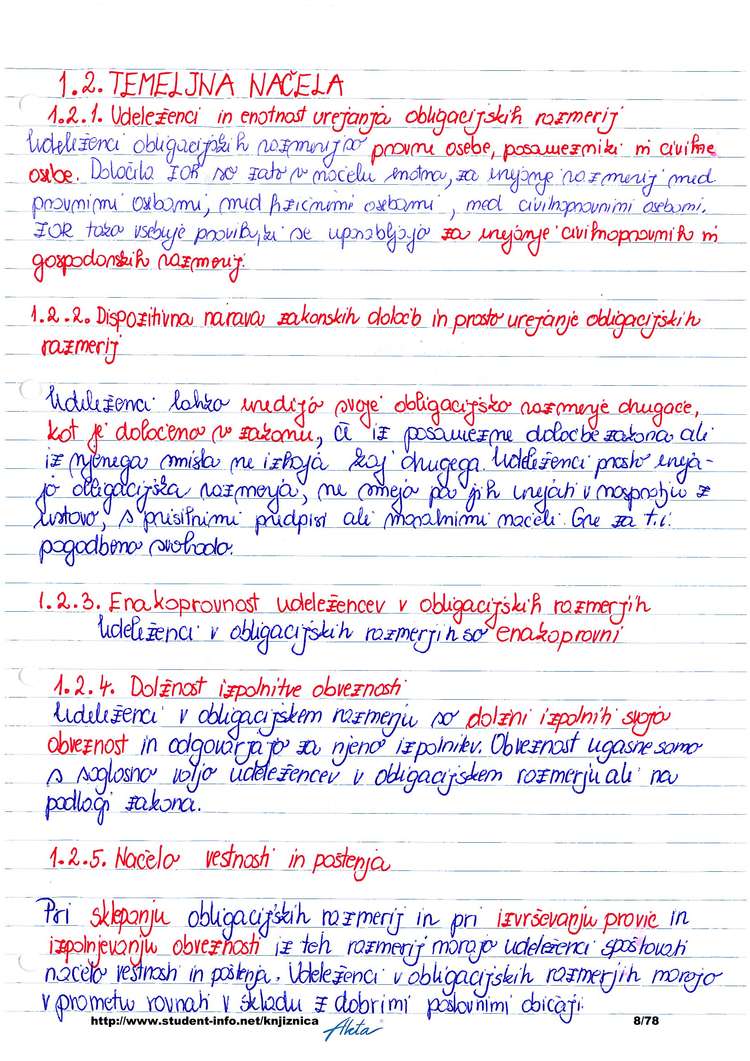 1.2. TEMELJNA NAČELA
1.2.1. Udeleženci in enotnost urejanja obligacijskih razmerij
Udeleženci obligacijskih razmerij so pravne osebe, posamezniki in civilne
osebe. Določila ZOR so zato v načelu enotna, za urejanje razmerij med
pravnimi osebami, med fizičnimi osebami, med civilnopravnimi osebami.
ZOR tako vsebuje pravila, ki se uporabljajo za urejanje civilnopravnih in
gospodarskih razmerij.
1.2.2. Dispozitivna narava zakonskih določb in prosto urejanje obligacijskih
razmerij
Udeleženci lahko uredijo svoje obligacijsko razmerje drugače,
kot je določeno v zakonu, če iz posamezne določbe zakona ali
iz njenega smisla ne izhaja kaj drugega. Udeleženci prosto ureja-
jo obligacijska razmerja, ne smejo pa jih urejati v nasprotju z
ustavo, s prisilnimi predpisi ali moralnimi načeli. Gre za t.i.
pogodbeno svobodo.
1.2.3. Enakopravnost udeležencev v obligacijskih razmerjih
Udeleženci v obligacijskih razmerjih so enakopravni
1.2.4. Dolžnost izpolnitve obveznosti
Udeleženci v obligacijskem razmerju so dolžni izpolniti svojo
obveznost in odgovarjajo za njeno izpolnitev. Obveznost ugasne samo
s soglasno voljo udeležencev v obligacijskem razmerju ali na
podlagi zakona.
1.2.5. Načelo vestnosti in poštenja
Pri sklepanju obligacijskih razmerij in pri izvrševanju pravic in
izpolnjevanju obveznosti iz teh razmerij morajo udeleženci spoštovati
načelo vestnosti in poštenja. Udeleženci v obligacijskih razmerjih morajo
v prometu ravnati v skladu z dobrimi poslovnimi običaji.
http://www.student-info.net/knjiznica
8/78